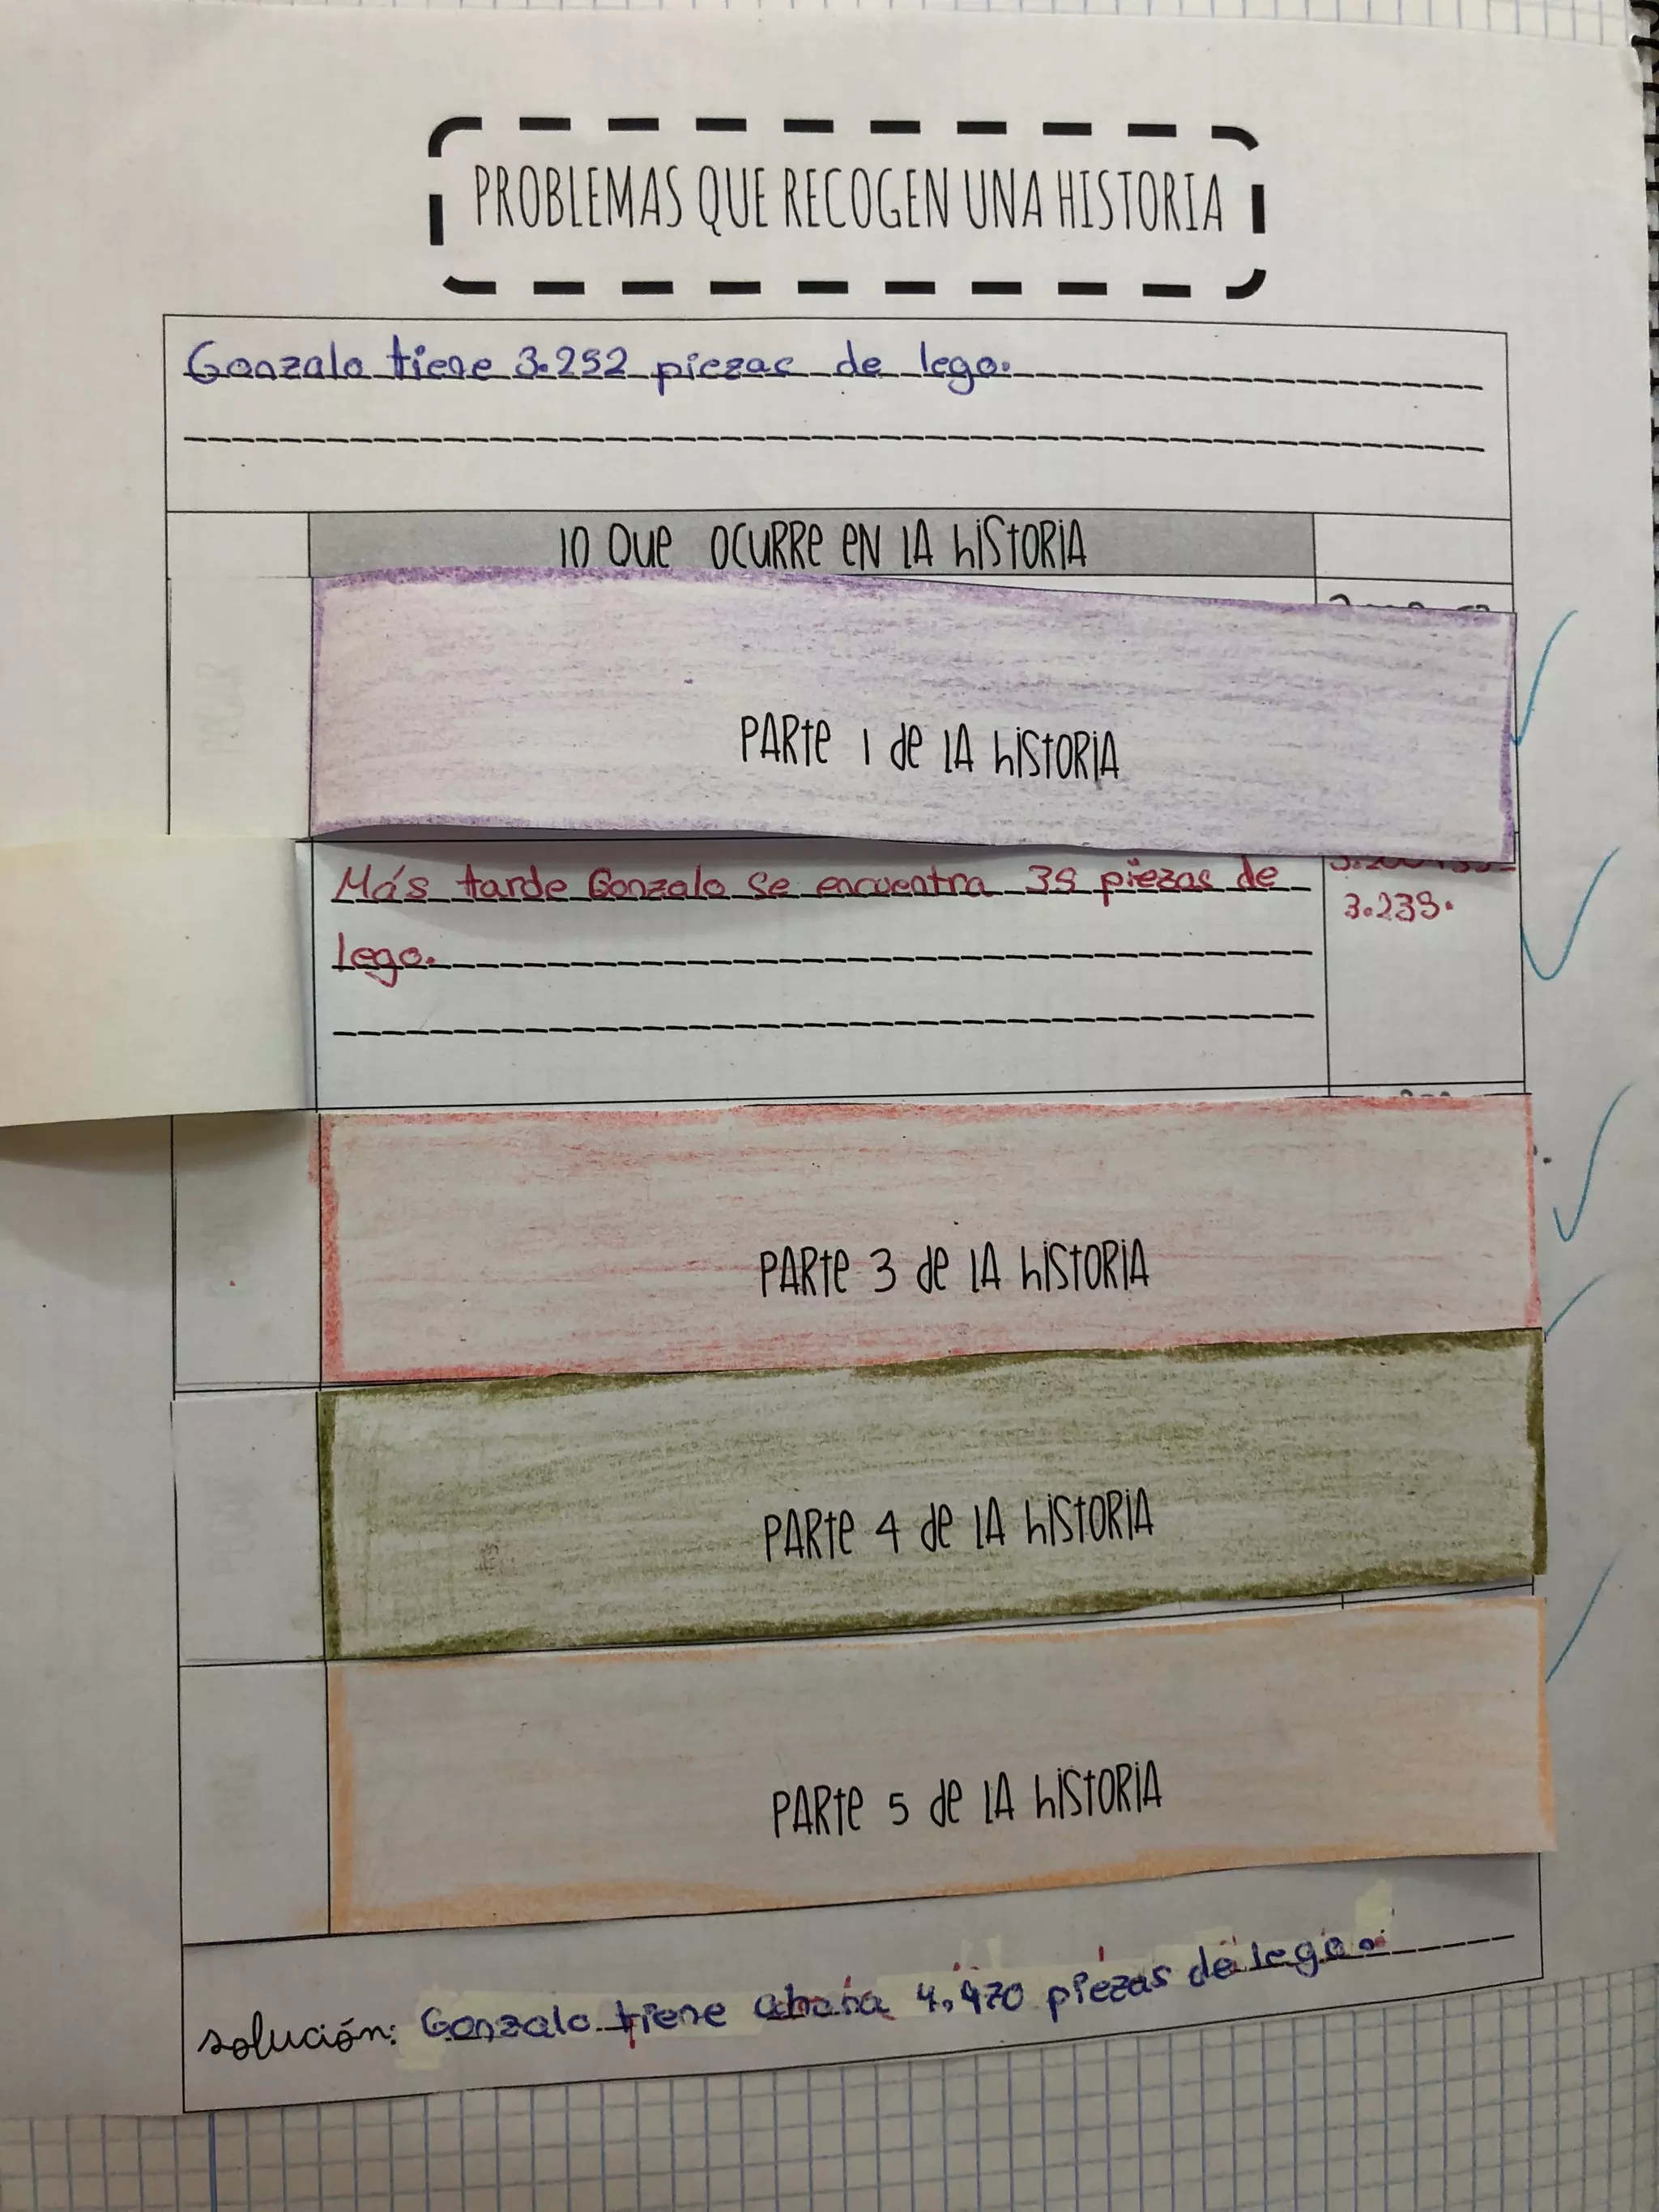 PROBLEMAS QUE RECOGEN UNA HISTORIA
Gonzalo tiene 3.252 piezas de lego.
LO QUE OCURRE EN LA HISTORIA
PARTE 1 DE LA HISTORIA
Más tarde Gonzalo se encuentra 39 piezas de
lego.
3.239.
PARTE 3 DE LA HISTORIA
PARTE 4 DE LA HISTORIA
PARTE 5 DE LA HISTORIA
solución: Gonzalo tiene ahora 4.470 piezas de lego.